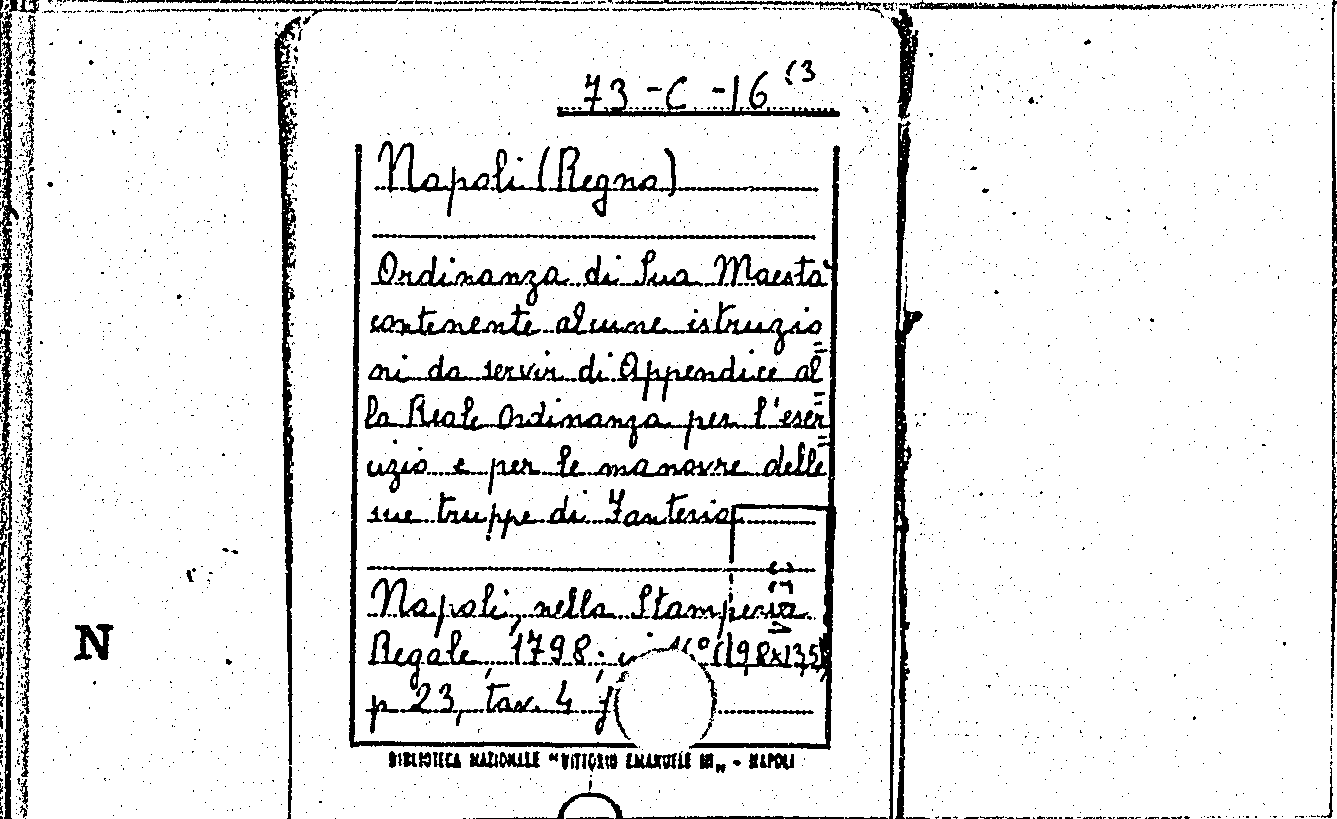 73-C-16 (3
Napoli (Regno)
Ordinanza di Sua Maestà
contenente alcune istruzio
ni da servir di Appendice al=
la Reale Ordinanza per l'eser=
cizio e per le manovre delle=
sue truppe di Fanteria
Napoli, nella Stamperia
Regale, 1798; (19,8x13,5)
p 23, tav. 4
N
BIBLIOTECA NAZIONALE "VITTORIO EMANUELE III„ - NAPOLI